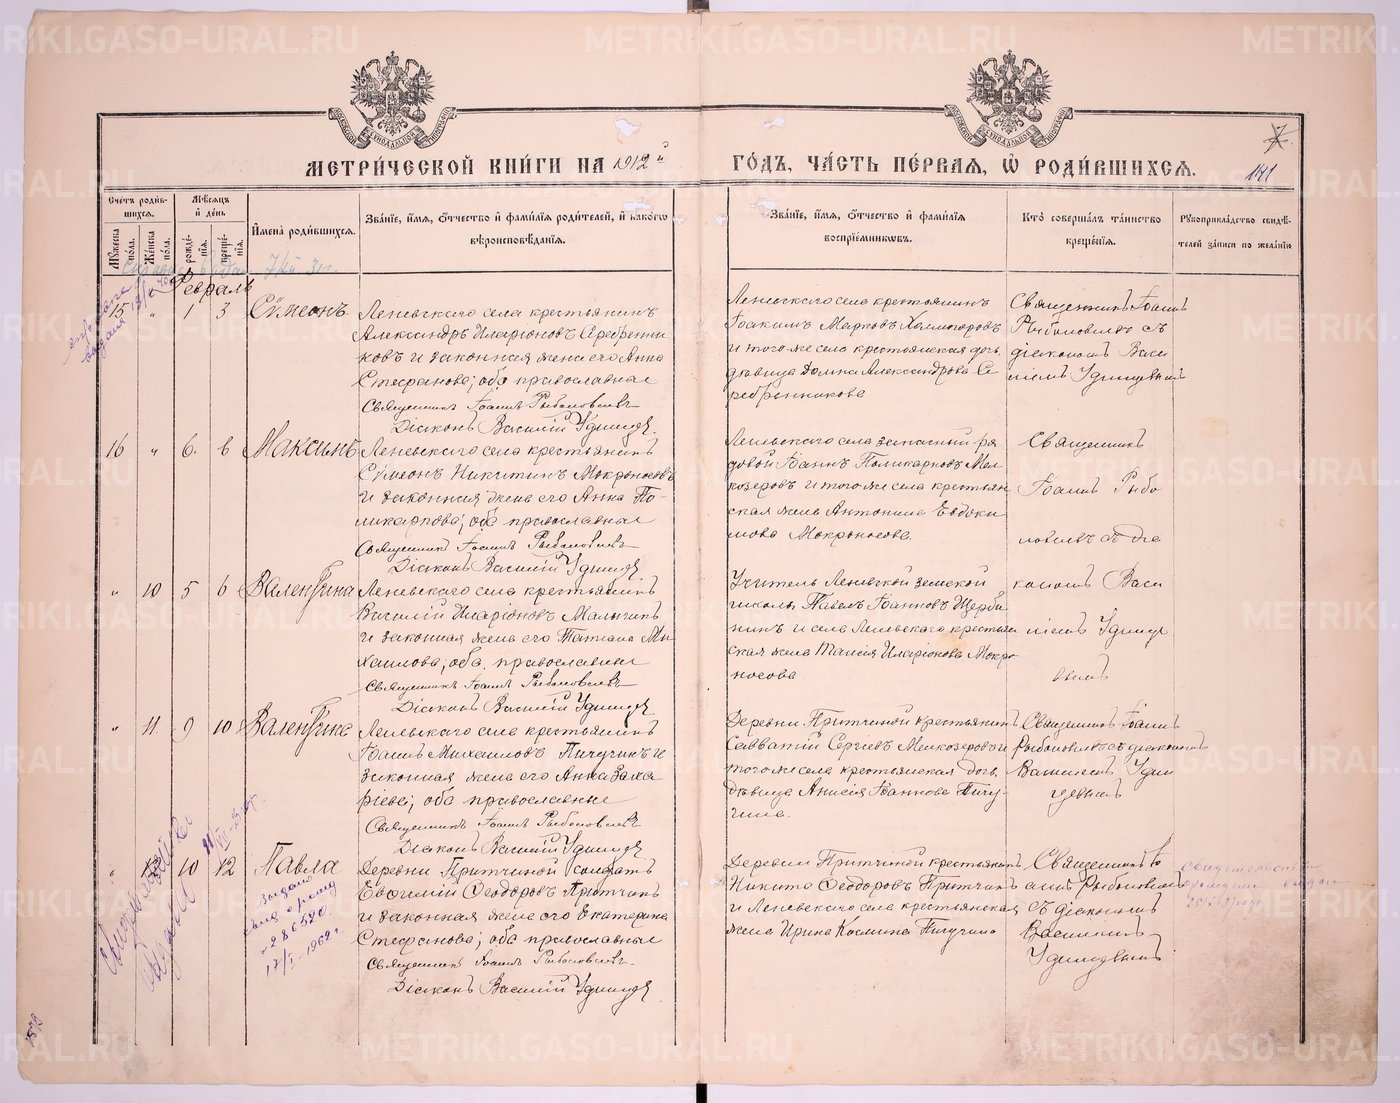 МЕТРИ́ЧЕСКОЙ КНИ́ГИ НА 1912й ГО́ДЪ, ЧА́СТЬ ПЕ́РВАЯ, Ѡ РОДИ́ВШИХСЯ.
141
Сче́тъ роди́вшихся.
Му́жеска по́ла.
Же́нска по́ла.
Мѣ́сяцъ и де́нь
рожде́нія.
креще́нія.
И́мена роди́вшихся.
Зва́ніе, и́мя, о́тчество и фами́лія роди́телей, и како́го вѣроисповѣ́данія.
Зва́ніе, и́мя, о́тчество и фами́лія воспріе́мниковъ.
Кто́ соверша́лъ та́инство креще́нія.
Рукоприкла́дство свидѣ́телей за́писи по жела́нію
Февраль
15 " 1 3 Сѷмеонъ
Леневскаго села крестьянинъ
Александръ Иларіоновъ Серебренни
ковъ и законная жена его Анна
Стефанова; оба православные
Священникъ Іоаннъ Рыболовлевъ
Діаконъ Василій Удинцев.
Леневскаго села крестьянинъ
Іоакимъ Марковъ
и того же села крестьянская дочь
дѣвица Домна Александрова Се
ребренникова
Священникъ Іоаннъ
Рыболовлевъ съ
діакономъ Васи
ліемъ Удинцевымъ
16 " 6 6 Максимъ
Леневскаго села крестьянинъ
Сѷмеонъ Никитинъ Мокроносовъ
и законная жена его Анна По-
ликарпова; оба православные
Священникъ Іоаннъ Рыболовлевъ
Діаконъ Василій Удинцев.
Леневскаго села запасный ря
довой Іоаннъ Поликарповъ Мел
козеровъ и того же села крестьян
ская жена Антонина Евдоки
мова Мокроносова.
Священникъ
Іоаннъ Рыбо
ловлевъ съ діа
кономъ Васи
ліемъ Удинце
вымъ
" 10 5 6 Валентина
Леневскаго села крестьянинъ
Василій Иларіоновъ Малыгинъ
и законная жена его Татіана Ми
хаилова; оба православные
Священникъ Іоаннъ Рыболовлевъ
Діаконъ Василій Удинцев.
Учитель Леневской земской
школы Павелъ Іоанновъ Щерби
нинъ и села Леневскаго крестьян
ская жена Таисія Иларіонова Мокро
носова
" 11 9 10 Валентина
Леневскаго села крестьянинъ
Іоаннъ Михаиловъ Пичугинъ и
законная жена его Анна Заха
ріева; оба православные
Священникъ Іоаннъ Рыболовлевъ
Діаконъ Василій Удинцев.
Деревни Притчиной крестьянинъ
Савватій Сергіевъ Мелкозеровъ и
того же села крестьянская дочь
дѣвица Анисія Іоаннова Пичу-
гина.
Священникъ Іоаннъ
Рыболовлевъ съ діакономъ
Василіемъ Удин
цевымъ
" 12 10 12 Павла
Деревни Притчиной солдатъ
Евфимій Ѳеодоровъ Притчинъ
и законная жена его Екатерина
Стефанова; оба православные
Священникъ Іоаннъ Рыболовлевъ.
Діаконъ Василій Удинцев.
Деревни Притчиной крестьянинъ
Никита Ѳеодоровъ Притчинъ
и Леневскаго села крестьянская
жена Ирина Космина Пичугина
Священникъ Іо
аннъ Рыболовлевъ
съ діакономъ
Василіемъ
Удинцевымъ
Выдано
свид о рожд
17/I-1962 г
METRIKI.GASO-URAL.RU